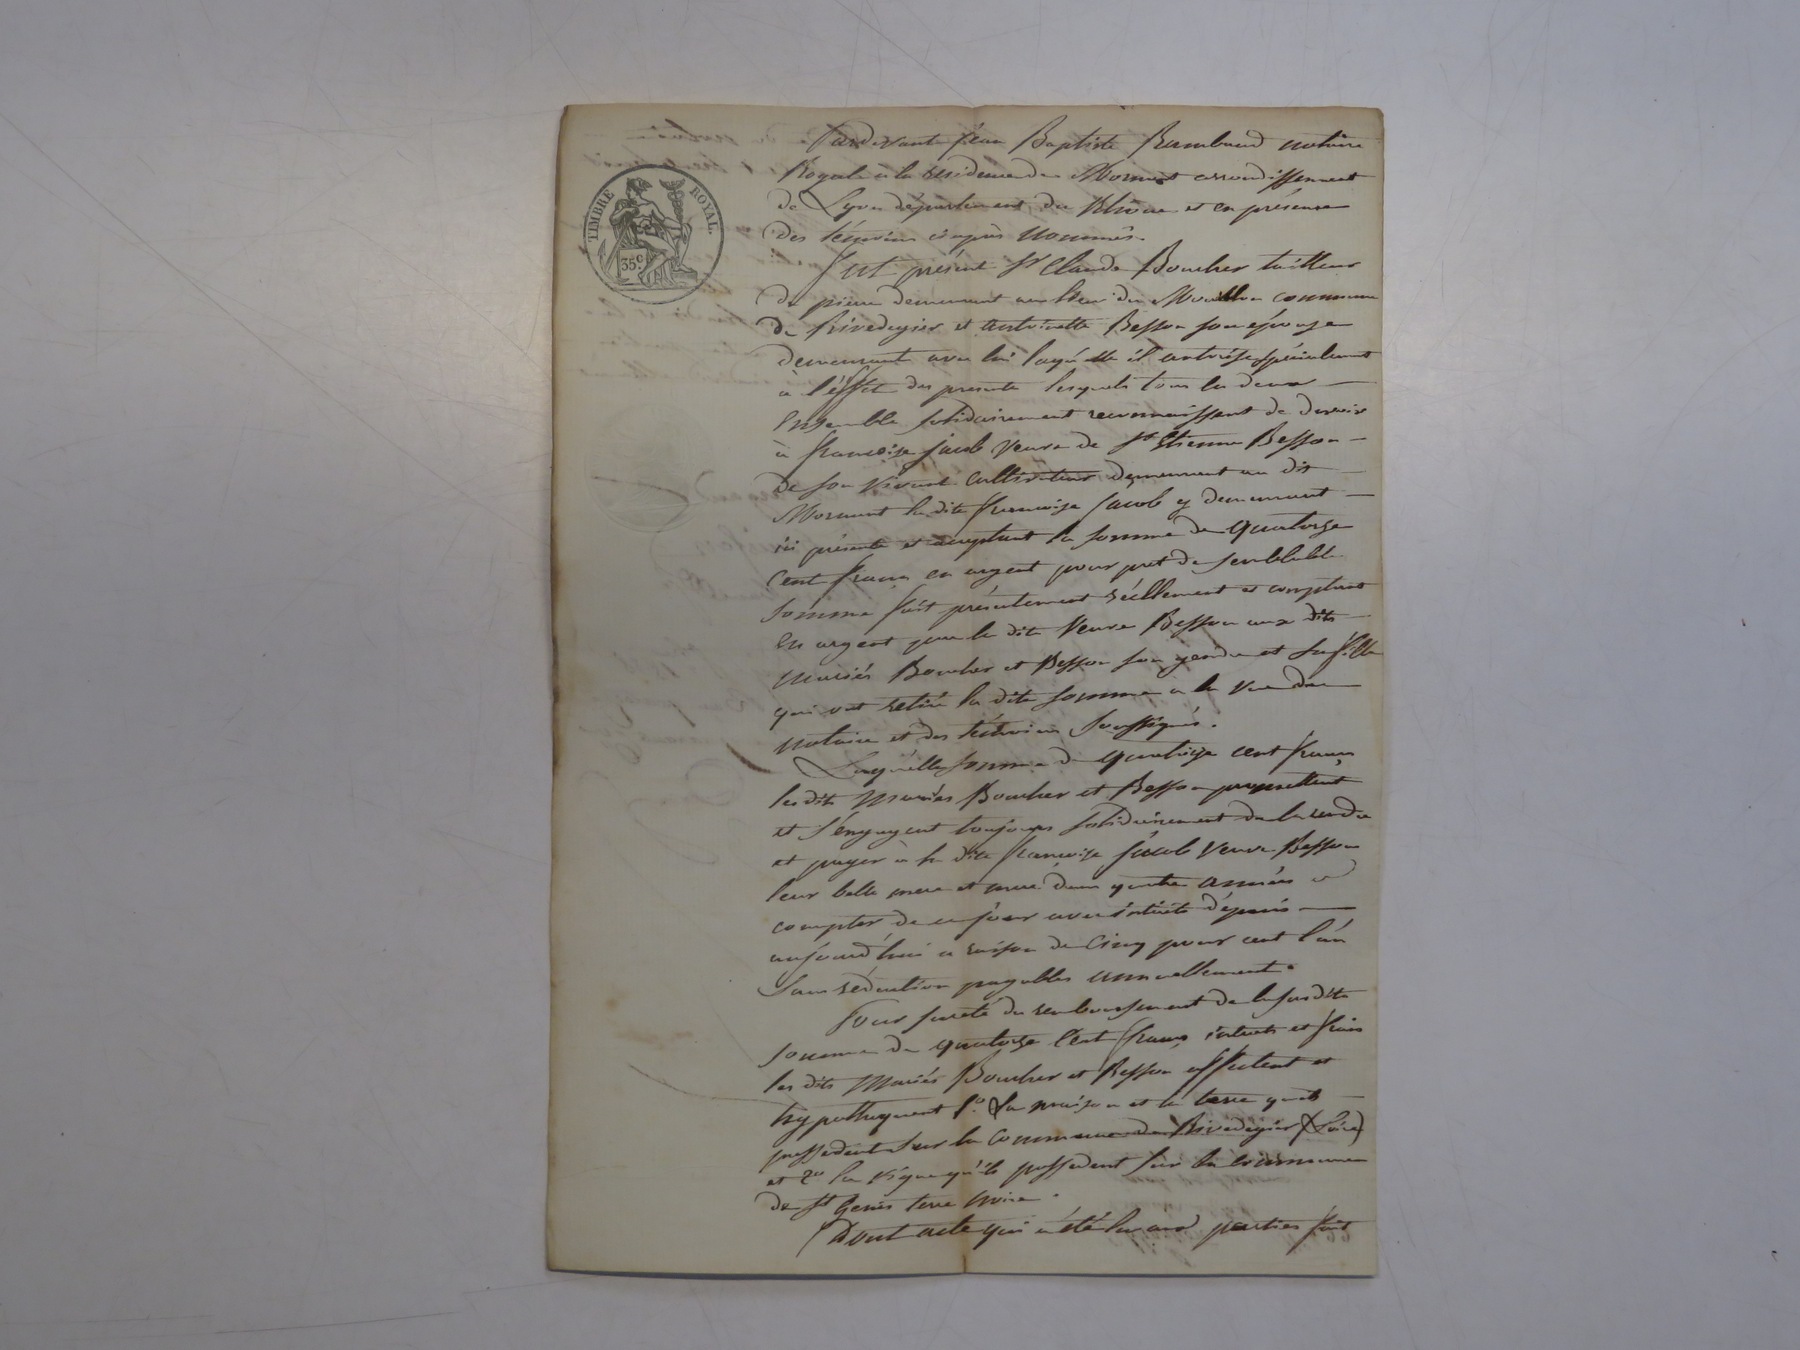 TIMBRE ROYAL.
35 c.
Pardevant jean Baptiste Rambaud notaire
Royale à la residence de Mornant arrondissement
de Lyon département du Rhône et en présence
des témoins ciaprès nommés.
fut présent Sr Claude Boucher tailleur
de pierre demeurant au lieu du Mouillon commune
de Rivedegier et antoinette Besson son épouse
demeurant avec lui laquelle il autorise spécialement
à l'éffet des presente lesquels tous les deux
Ensemble solidairement reconnaissent de devoir
à francoise jacob veuve de Sr Etienne Besson
de son vivant Cultivateur demeurant au dit
Mornant la dite francoise jacob y demeurant
ici présente et acceptant la somme de quatorze
Cent francs en argent pour pret de semblable
somme fait présentement réellement et comptant
en argent par la dite Veuve Besson aux dits
mariés Boucher et Besson son gendre et sa fille
qui ont retiré la dite somme a la vue du
notaire et des témoins soussignés.
Laquelle somme de quatorze cent francs
les dits mariés Boucher et Besson promettent
et s'engagent toujours solidairement de la rendre
et payer à la dite francoise jacob Veuve Besson
leur belle mere et mere dans quatre années a
compter de ce jour avec intérêts dépuis
aujourd'hui a raison de Cinq pour cent l'an
sans réduction payables annuellement.
Pour sureté du remboursement de la susdite
somme de quatorze Cent francs, intérets et frais
les dits Mariés Boucher et Besson affectent et
hypothequent 1o. La maison et la terre quils
possedent sur la Commune de Rivedegier (Loire)
et 2o la vigne qu'ils possedent sur la commune
de St Genis terre noire.
Dont acte qui a été lu aux parties fait